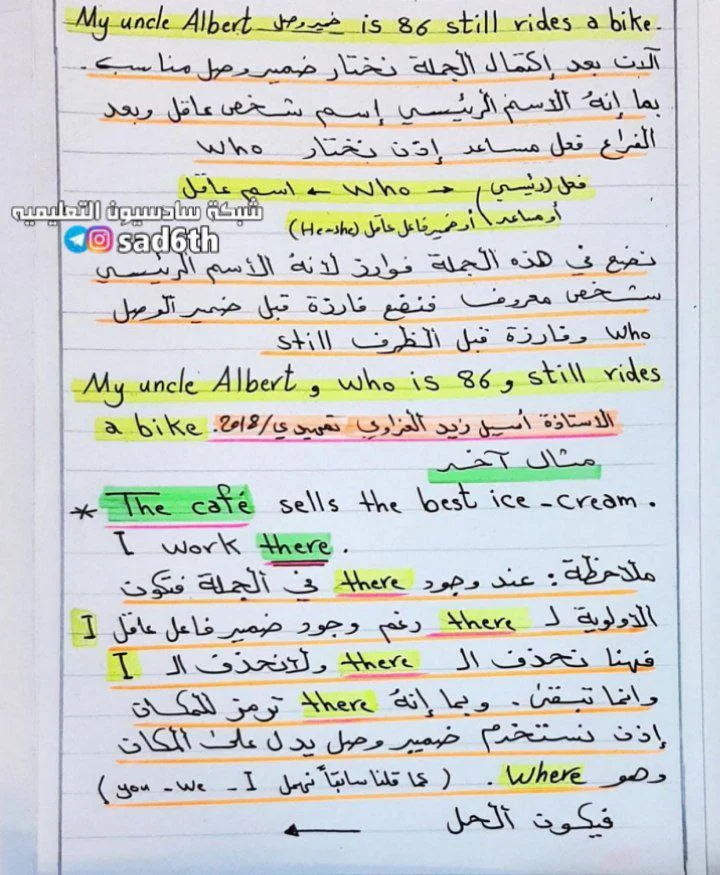 My uncle Albert ضمير وصل is 86 still rides a bike.
آلان بعد إكتمال الجملة نختار ضمير وصل مناسب.
بما إنهُ الاسم الرئيسي إسم شخص عاقل وبعد
الفراغ فعل مساعد إذن نختار who
اسم عاقل ← who → فعل (رئيسي
أو مساعد) أو ضمير فاعل عاقل (He-she)
شبكة سادسيون التعليميه
sad6th
نضع في هذه الجملة فوارز لانهُ الأسم الرئيسي
شخص معروف فنضع فارزة قبل ضمير الوصل
who وفارزة قبل الظرف still
My uncle Albert , who is 86 , still rides
a bike. الاستاذة أسيل زيد العزاوي تمهيدي/2018.
مثال آخر
* The café sells the best ice-cream.
I work there.
ملاحظة : عند وجود there في الجملة فتكون
الاولوية لـ there رغم وجود ضمير فاعل عاقل I
فهنا نحذف الـ there ولانحذف الـ I
وانما تبقىٰ. وبما إنهُ there ترمز للمكان
إذن نستخدم ضمير وصل يدل علىٰ المكان
وهو where. (كما قلنا سابقاً نهمل you - we - I)
فيكون الحل ←